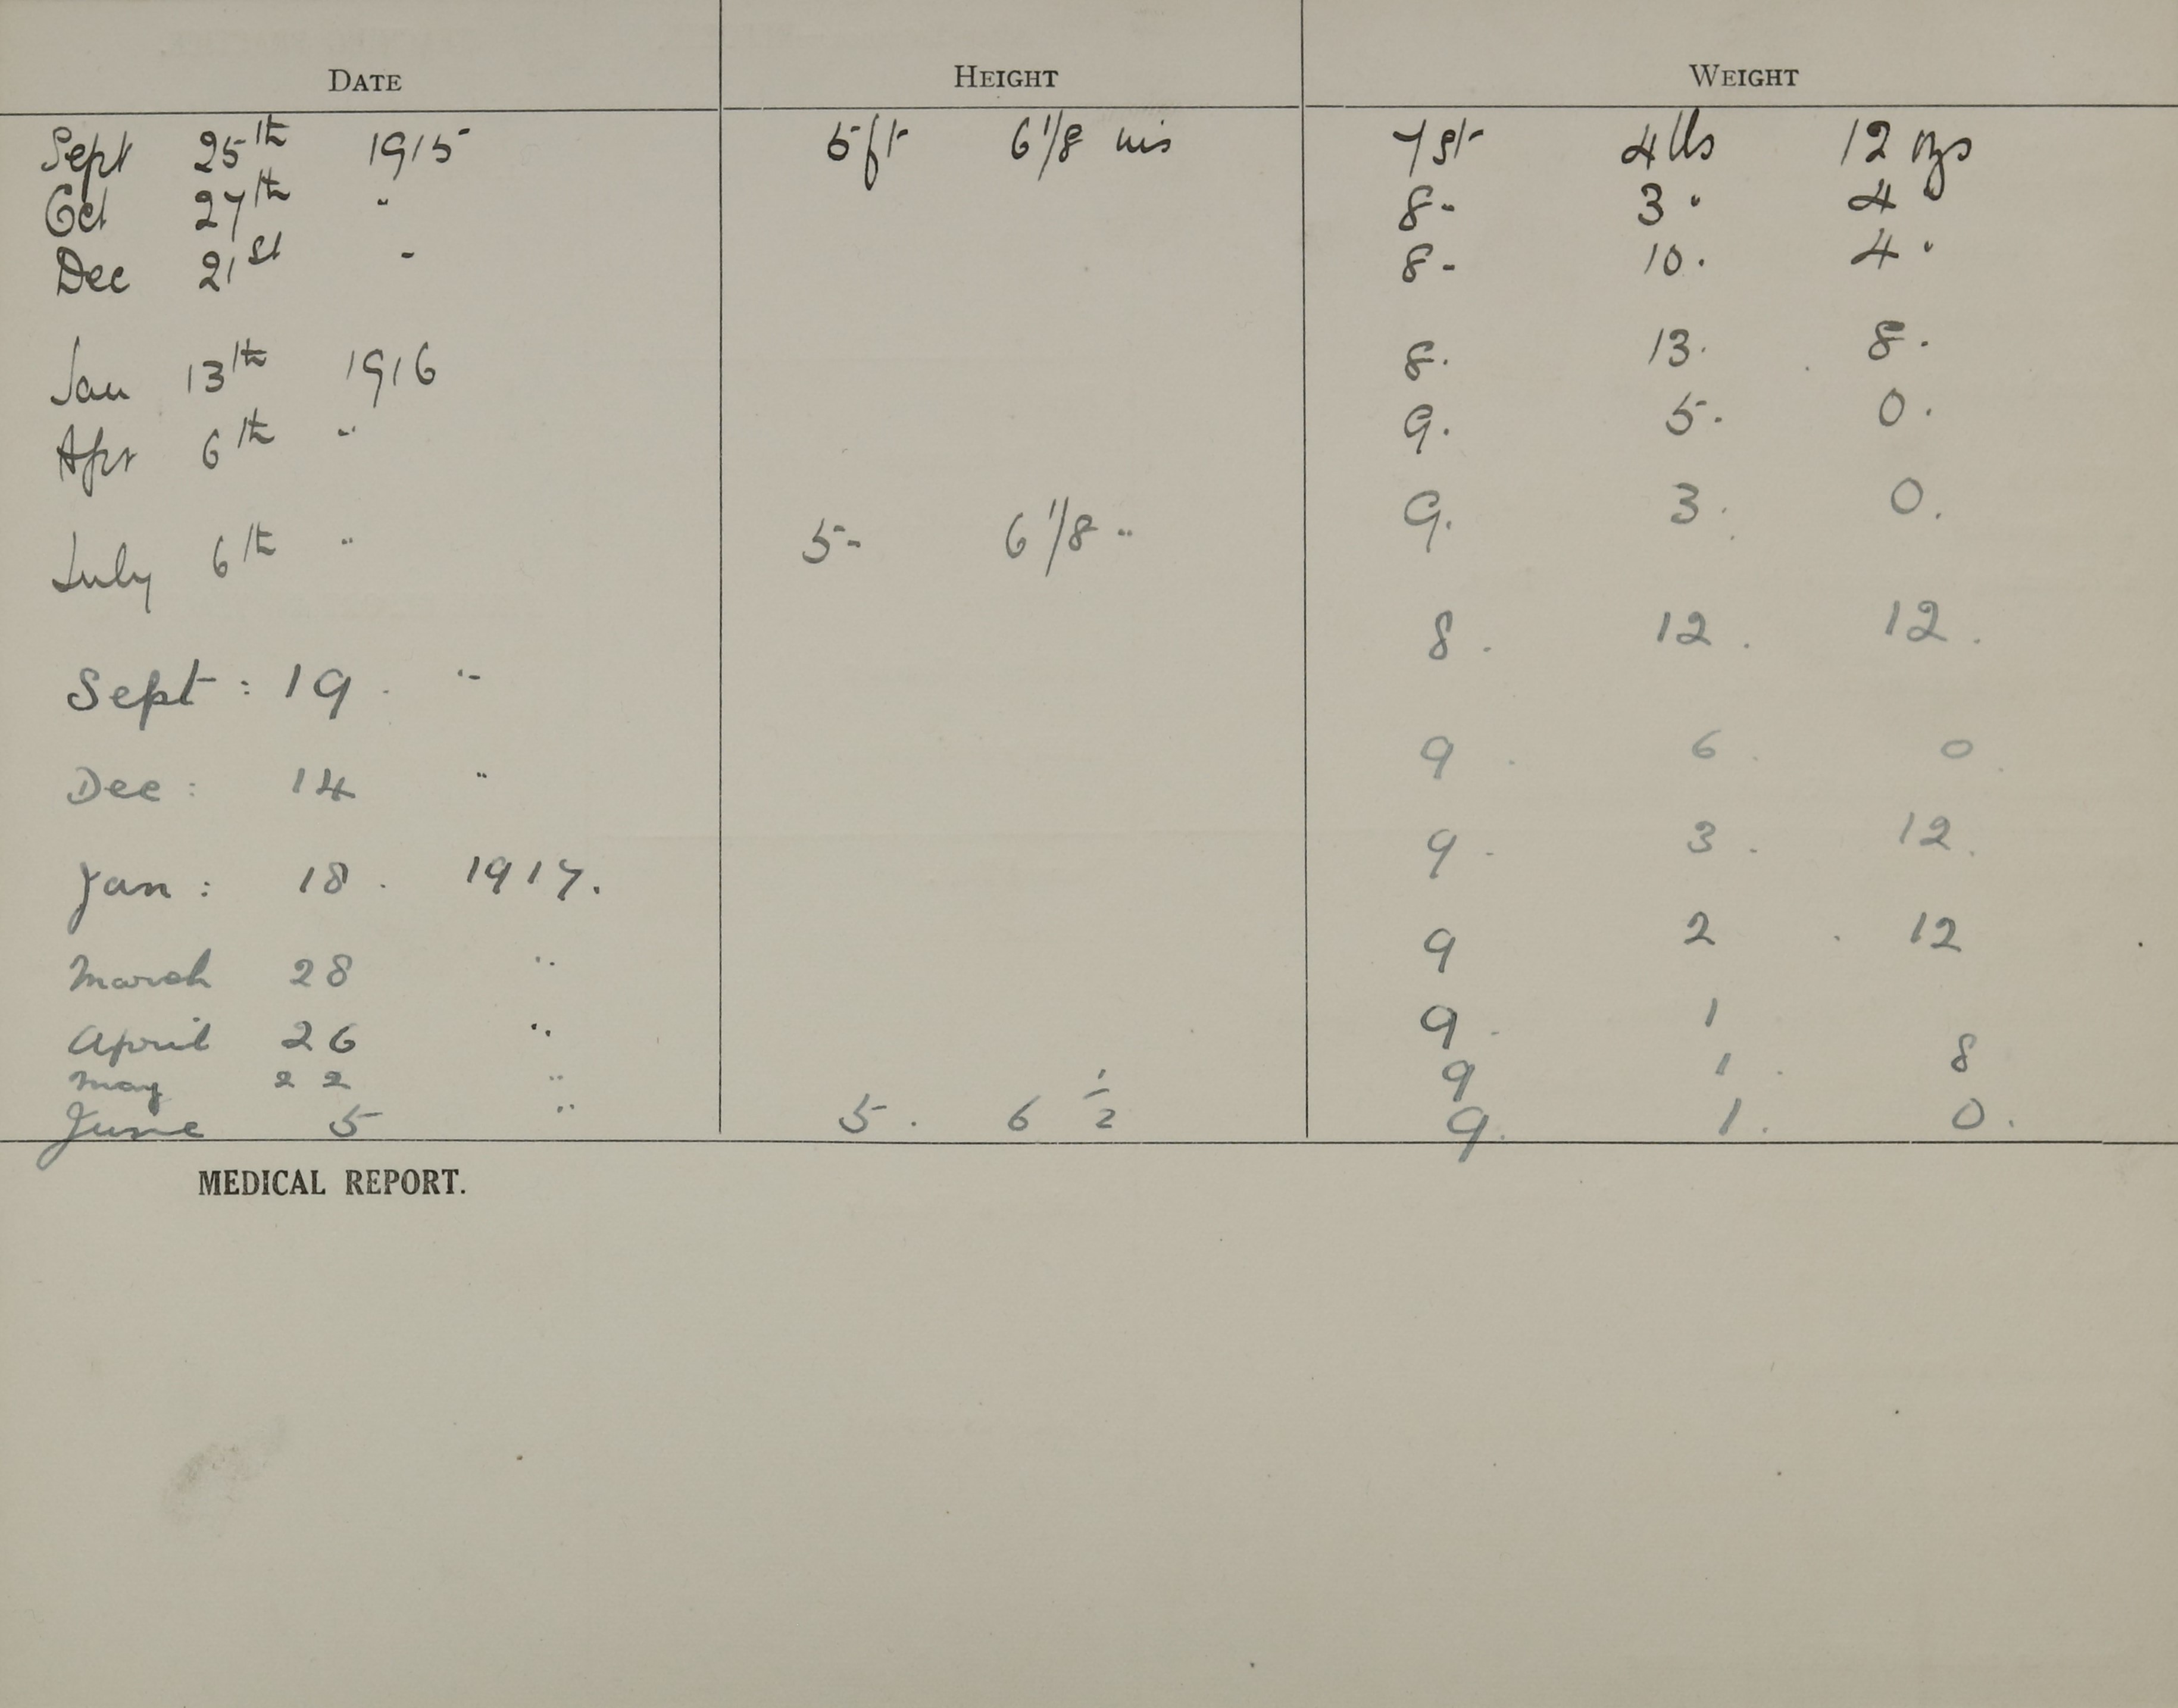 DATE HEIGHT WEIGHT
Sept 25th 1915 5ft 6 1/8 ins 7 st 4 lbs 12 ozs
Oct 27th " 8 - 3 " 4 "
Dec 21st - 8 - 10 . 4 "
Jan 13th 1916 8 . 13 . 8 .
Apr 6th " 9 . 5 . 0 .
July 6th " 5 - 6 1/8 " 9 . 3 . 0 .
Sept : 19 . " 8 . 12 . 12 .
Dec : 14 " 9 . 6 . 0 .
Jan : 18 . 1917. 9 - 3 . 12 .
March 28 " 9 2 . 12
April 26 " 9 - 1
May 22 " 9 1 . 8
June 5 " 5 . 6 1/2 9 . 1 . 0 .
MEDICAL REPORT.